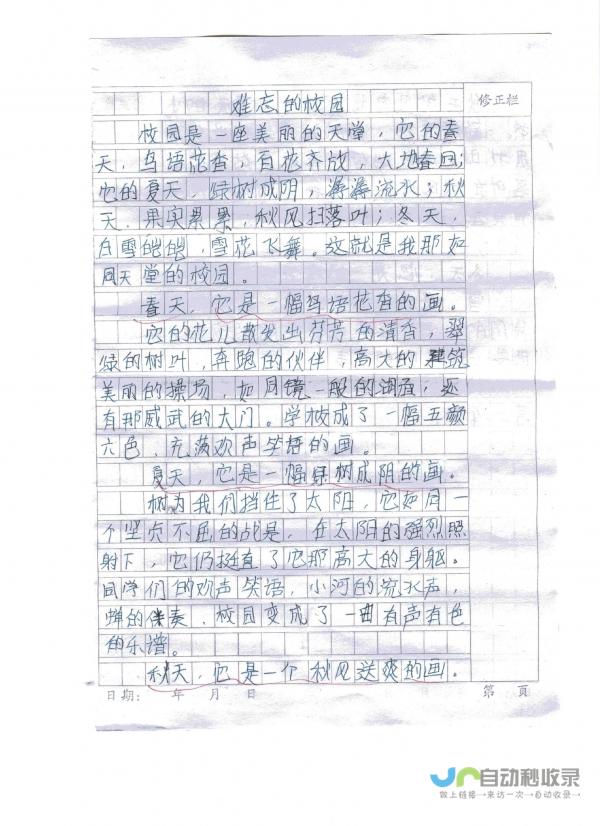 难忘的校园
修正栏
校园是一座美丽的天堂，它的春
天，鸟语花香，百花齐放，大地春回；
它的夏天，绿树成阴，潺潺流水；秋
天，果实累累，秋风扫落叶；冬天，
白雪皑皑，雪花飞舞。这就是我那如
同天堂的校园。
春天，它是一幅鸟语花香的画。
它的花儿散发出芬芳的清香，翠
绿的树叶，奔跑的伙伴，高大的建筑
美丽的操场，如同镜一般的湖面，还
有那威武的大门。学校成了一幅五颜
六色，充满欢声笑语的画。
夏天，它是一幅绿树成阴的画。
树为我们挡住了太阳，它如同一
个坚贞不屈的战是，在太阳的强烈照
射下，它仍挺直了它那高大的身躯。
同学们的欢声笑语，小河的流水声，
蝉的伴奏，校园变成了一曲有声有色
的乐谱。
秋天，它是一个秋风送爽的画。
日期： 年 月 日 第 页
自动秒收录
做上链接→来访一次→自动收录